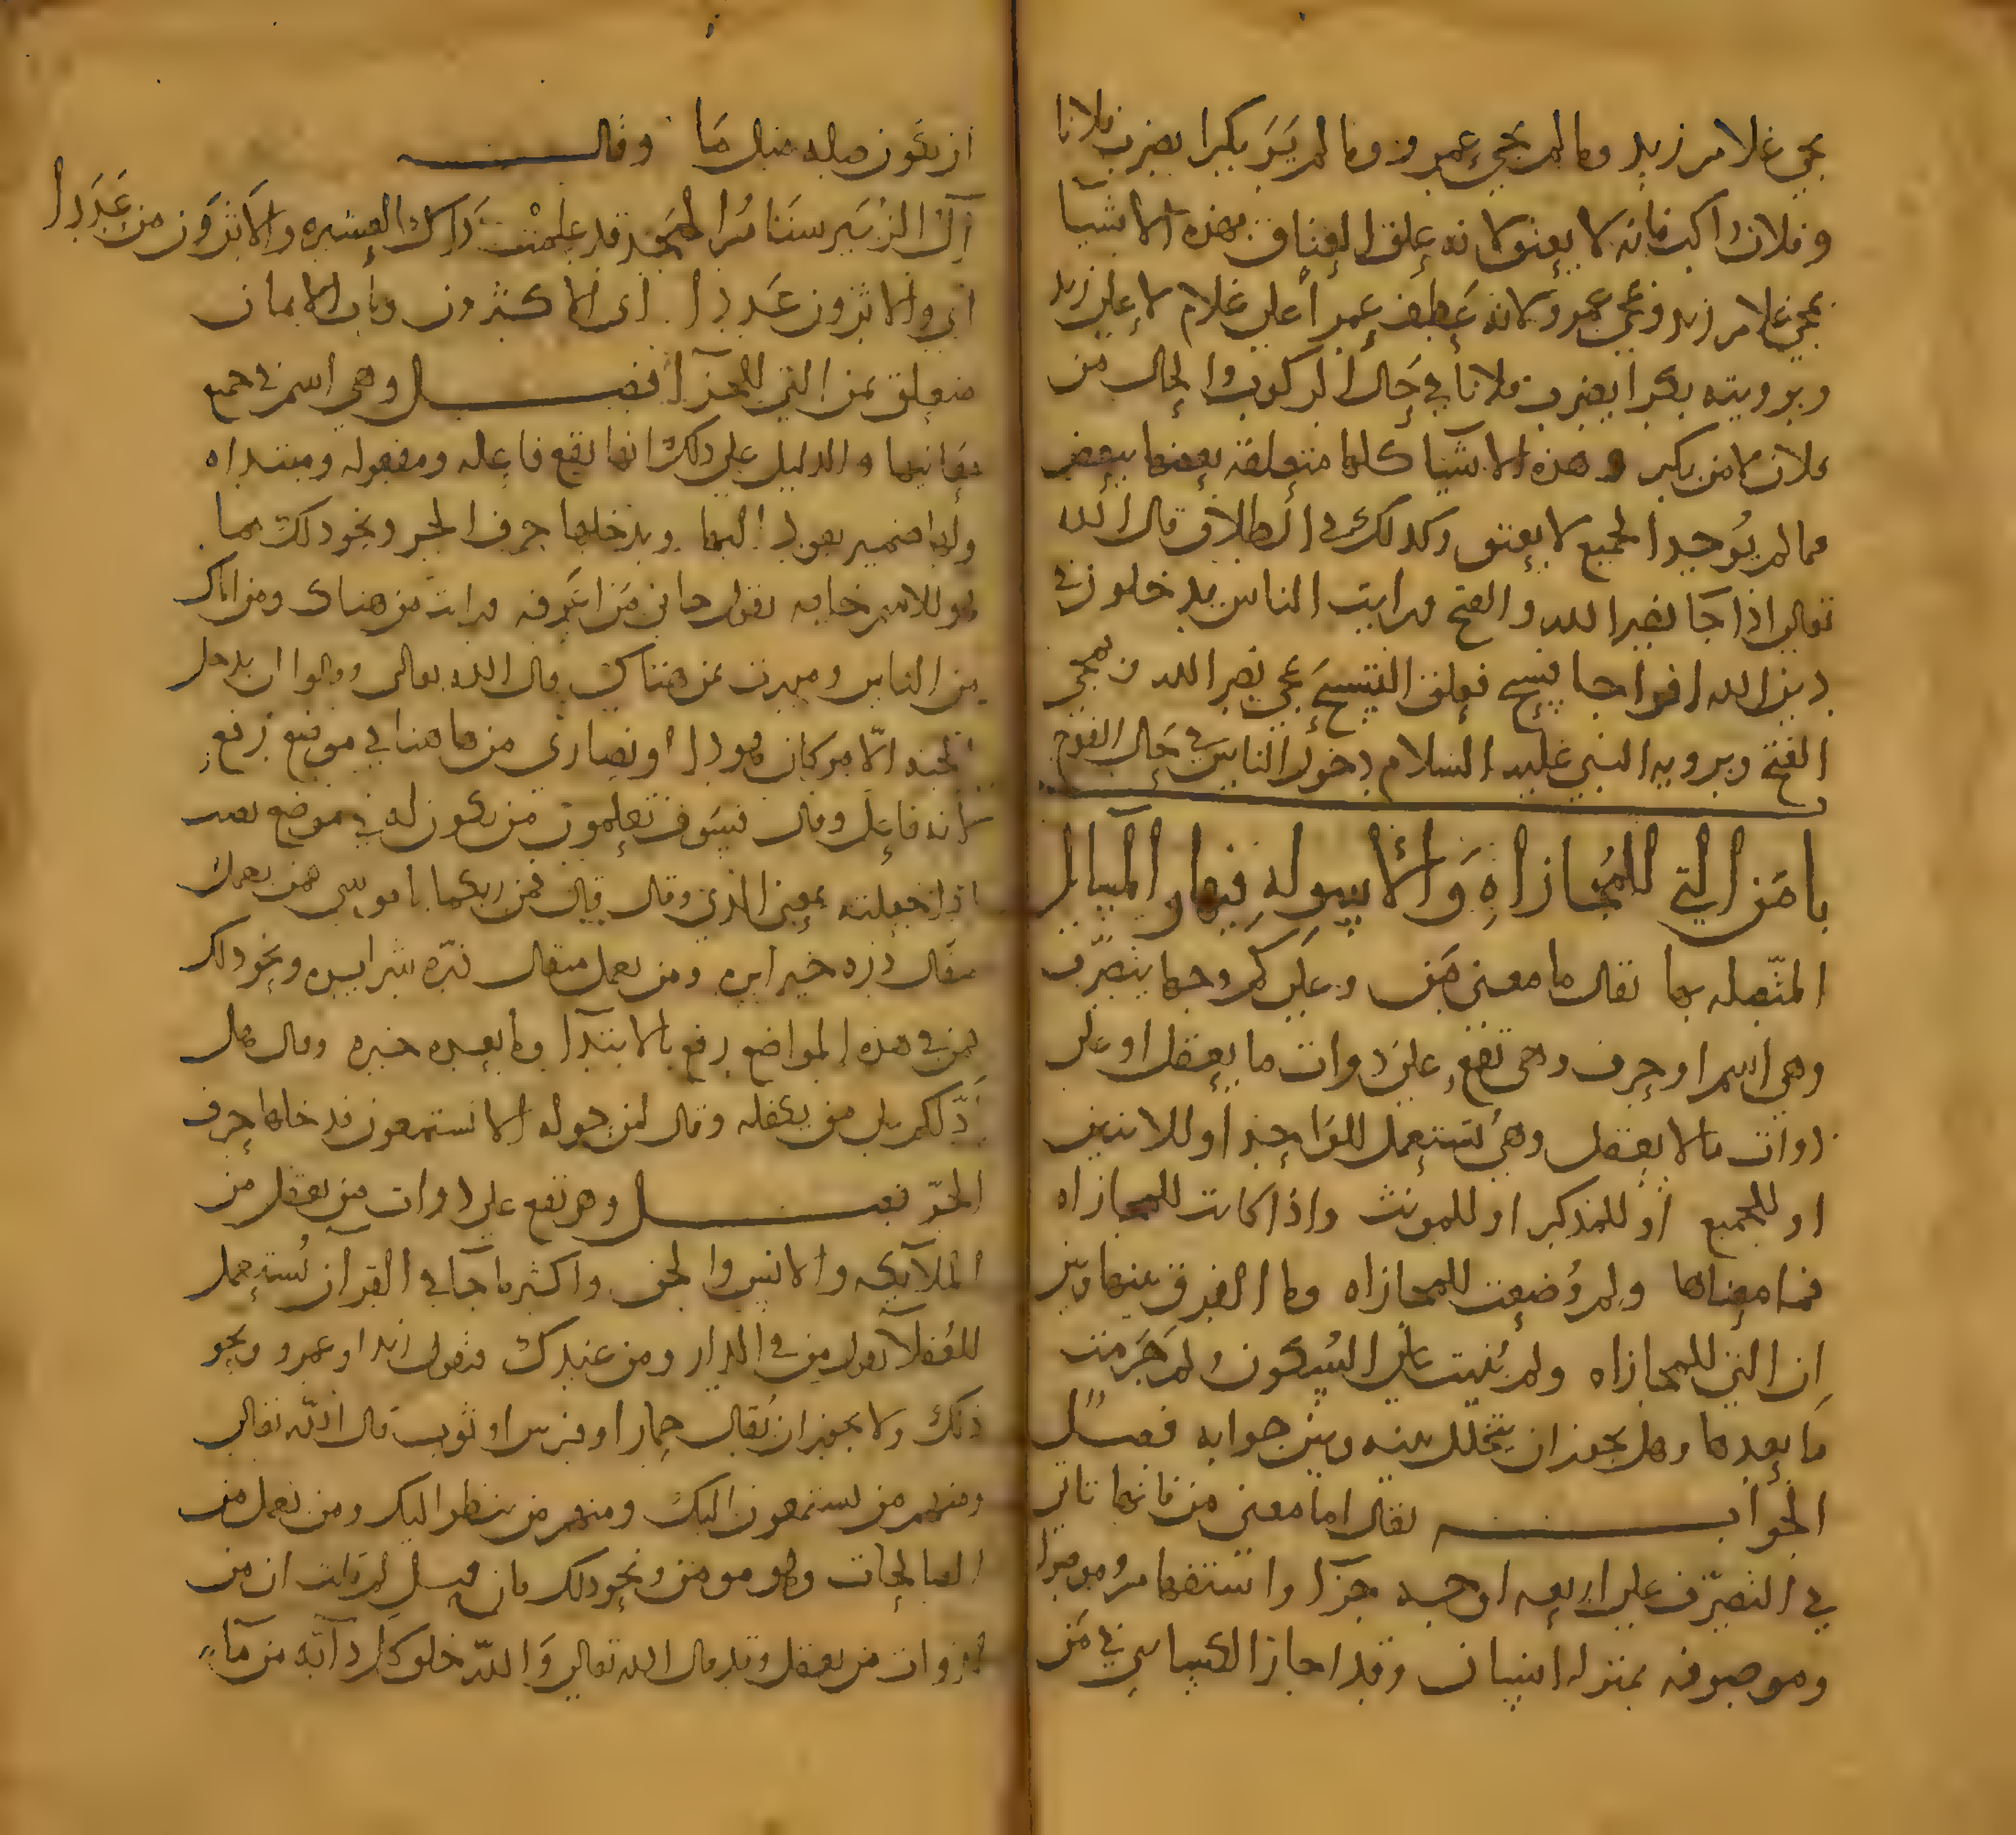 يجي غلام زيد وما لم يجيء عمرو وما لم يَرَ بكرا يضرب فلانا
وفلان راكب فانه لا يعتق لانه علق العتاق بهذه الاشيا
بمجي غلام زيد ومجي عمرو لانه عَطف عمرا علي غلام لا علي زيد
وبرويته بكرا يضرب فلانا في حال الركوب والحال من
فلان لا من بكر وهذه الاشيا كلها متعلقة بعضها ببعض
فما لم يُوجد الجميع لا يعتق وكذلك في الطلاق قال الله
تعالي اذا جا نصر الله والفتح ورايت الناس يدخلون في
دين الله افواجا فسبح فعلق التسبيح بمجي نصر الله وبمجي
الفتح وبرويه النبي عليه السلام دخول الناس في حال الفوج
باب مَن التي للمُجازاهِ وَالأسولهِ فيها والمسايل
المتّصله بها يقال ما معني مَن وعلي كم وجها يتصرّف
وهي اسم او حرف وهي تقع علي ذوات ما يعقل او علي
ذوات ما لا يعقل وهي تستعمل للواحد او للاثنين
او للجميع او للمذكر او للمونث واذا كانت للمجازاه
فما معناها ولم وُضعت للمجازاه وما الفرق بينها وبين
ان التي للمجازاه ولم بُنيت علي السكون ولم جَزمت
ما بعدها وهل يجوز ان يتخلّل بينه وبين جوابه فصل
الجواب يقال اما معني من فانها تاتي
في التصرّف علي اربعه اوجه جزآ واستفهام وموصولة
وموصوفه بمنزله انسان وقد اجاز الكسايي في مَن
ان تكون صله مثل مَا وقال
آل الزُبَير سنَنامُ المجد قد علمتْ ذاك العشيره والاَثرَون من عَدَدا
اي والاثرون عَددا اي الاكثرون وباب الايمان
متعلق بمن التي للجزآ فصل وهي اسم في جميع
معانيها والدليل علي ذلك انها تقع فاعله ومفعوله ومبتداه
ولها ضمير يعود اليها ويدخلها حرف الجر ونحو ذلك مما
هو للاسم خاصه تقول جاني مَن اعرفه ورايت من هناك ومن اكرم
من الناس ومررت بمن هناك قال الله تعالي وقالوا لن يدخل
الجنه الّا من كان هودا او نصاري من هاهنا في موضع رفع
لانه فاعل وقال فسَوف تعلمون من تكون له في موضع نصب
اذا جعلته بمعني الذي وقال قال فمن ربكما يا موسي فمن يعمل
مثقال ذره خيرا يره ومن يعمل مثقال ذرّه شرا يره ونحو ذلك
فمن في هذه المواضع رفع بالابتدآ وما بعده خبره وقال هل
ادّلكم علي من يكفله وقال لمن حوله الا تستمعون فدخلها حرف
الجرّ فصل وهي تقع علي ذوات من يعقل من
الملآيكه والانس والجن واكثر ما جآ في القرآن تُستعمل
للعُقلآ تقول من في الدار ومن عندك فتقول زيد او عمرو ونحو
ذلك ولا يجوز ان يُقال حمار او فرس او ثوب قال الله تعالي
ومنهم من يستمعون اليك ومنهم من ينظر اليك ومن يعمل من
الصالحات وهو مومن ونحو ذلك فان قيل لم قلت ان من
لذوات من يعقل وقد قال الله تعالي وَاللّه خلق كل دآبّه من مآ